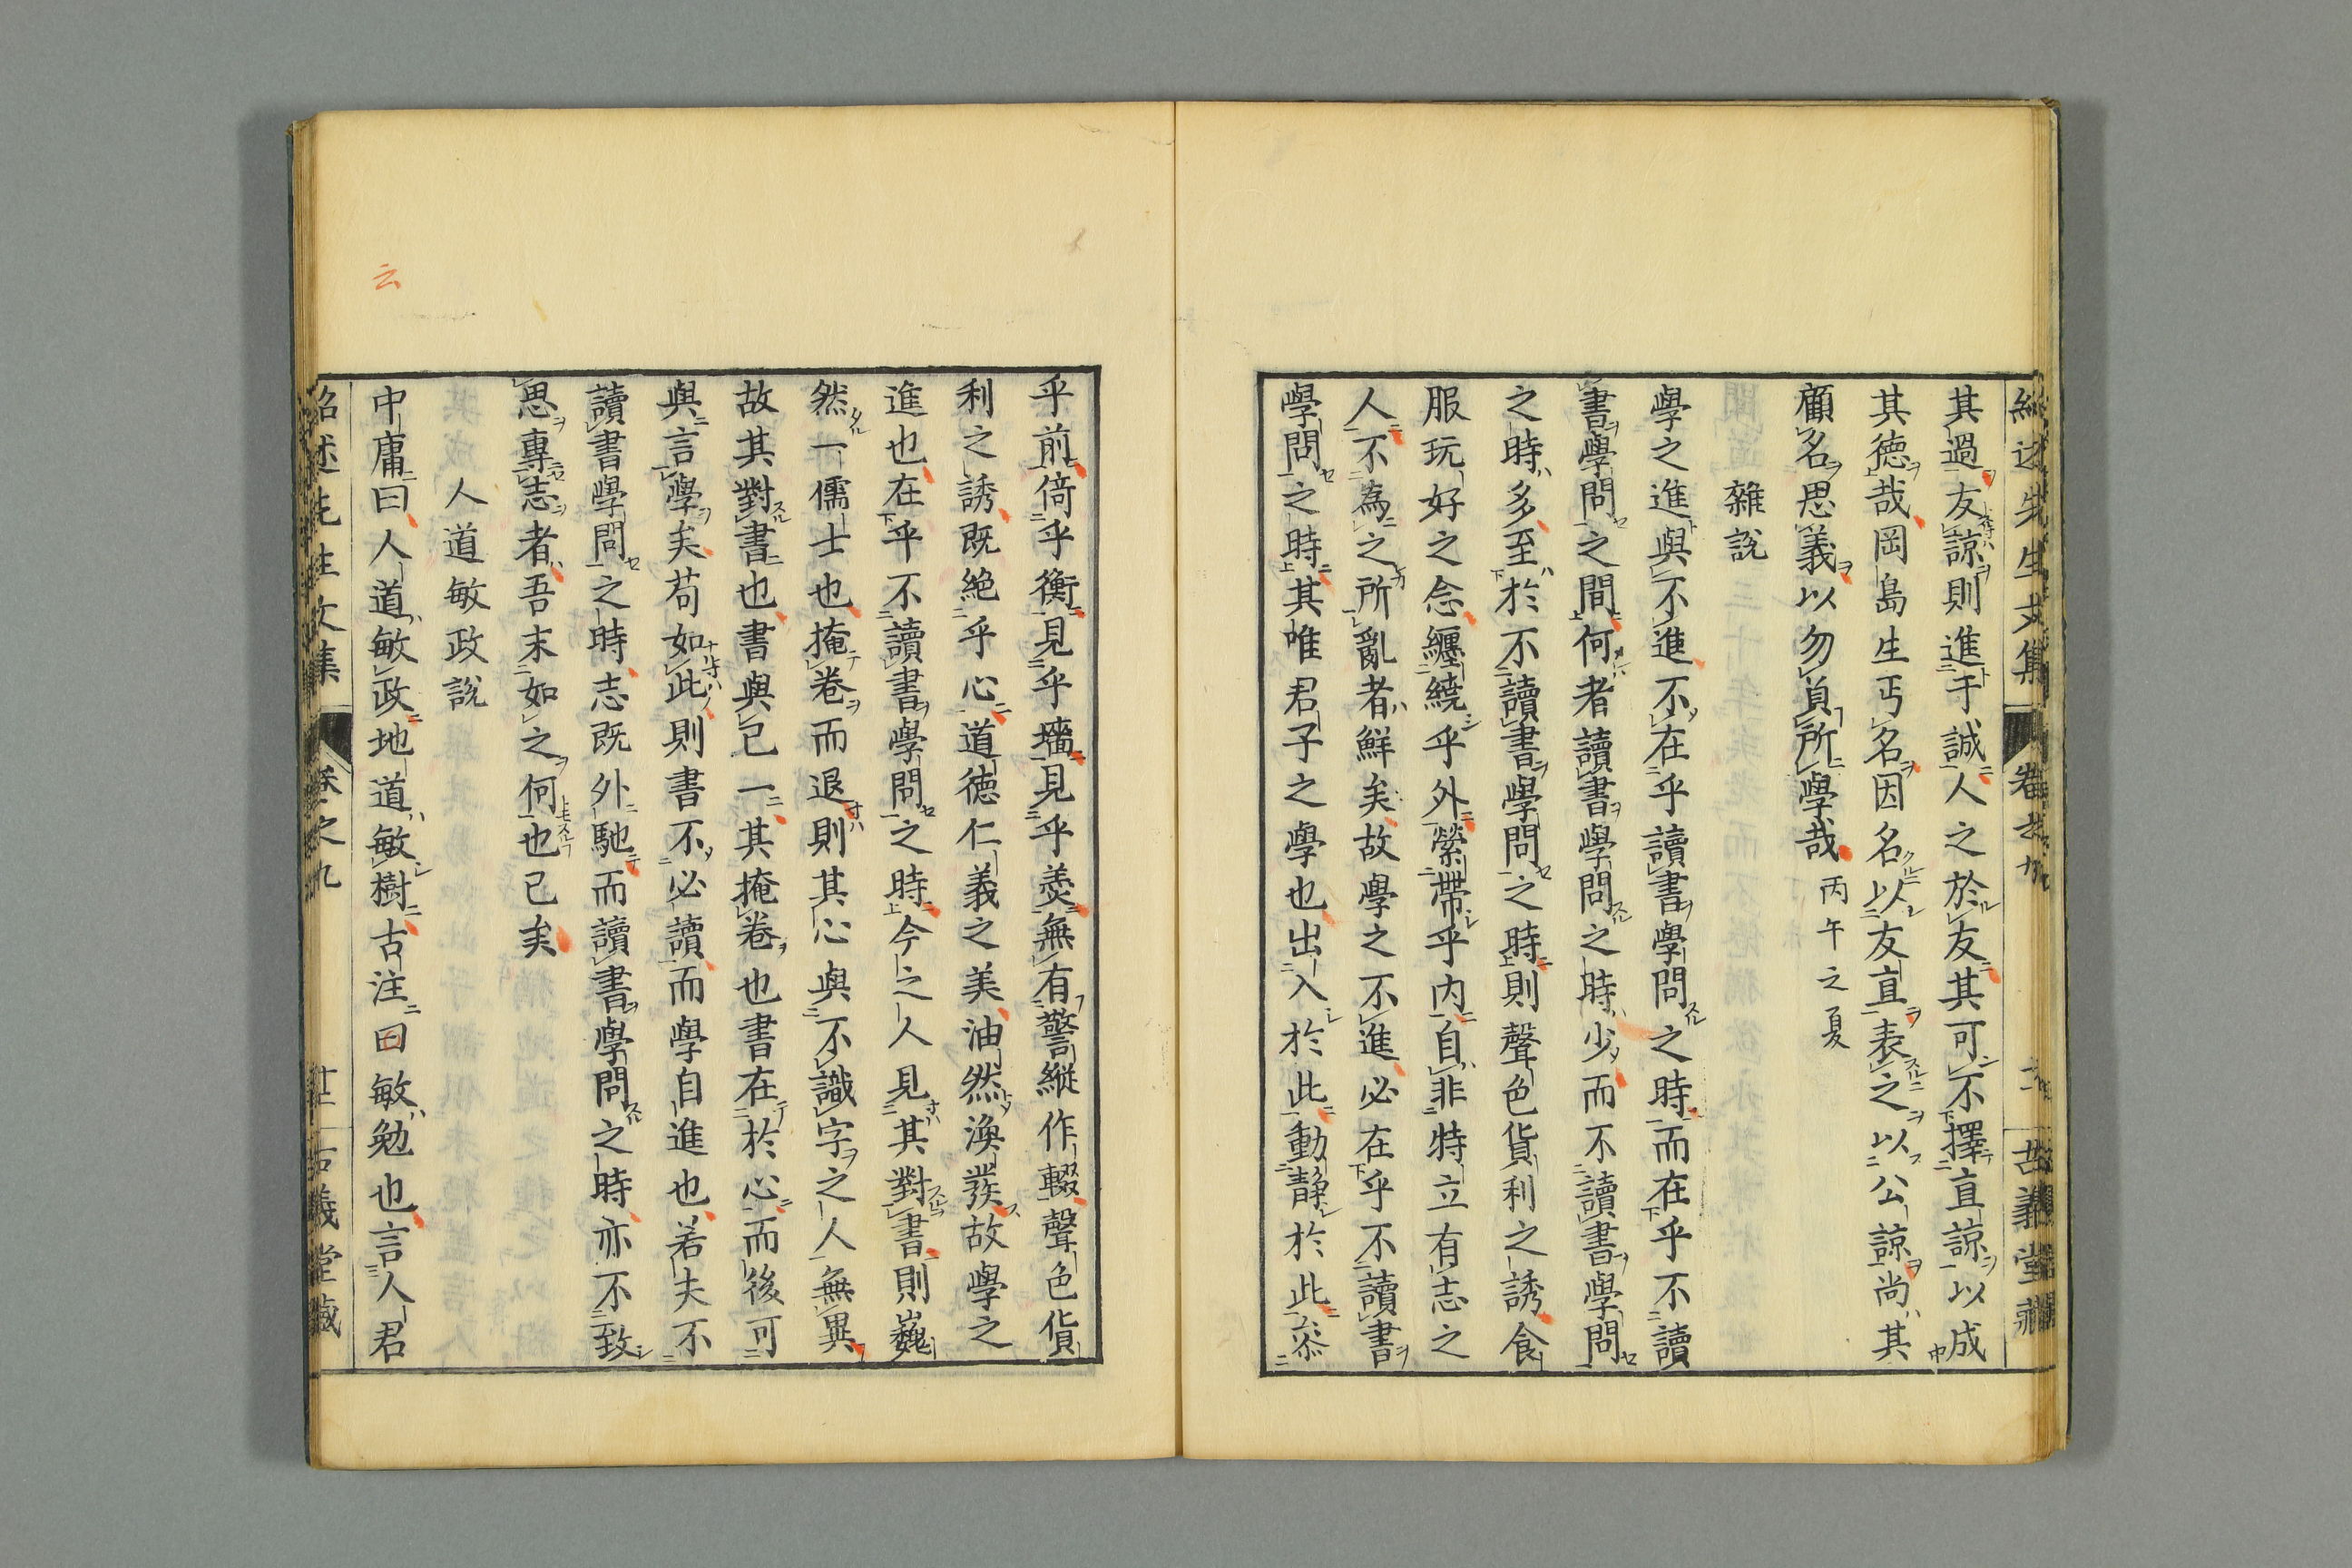 其過友諒則進于誠人之於友其可不擇直諒以成
其德哉岡島生丐名因名以友直表之以公諒尚其
顧名思義以勿負所學哉 丙午之夏
雜說
學之進與不進不在乎讀書學問之時而在乎不讀
書學問之間何者讀書學問之時少而不讀書學問
之時多至於不讀書學問之時則聲色貨利之誘食
服玩好之念纏繞乎外縈帶乎内自非特立有志之
人不為之所亂者鮮矣故學之不進必在乎不讀書
學問之時其唯君子之學也出入於此動靜於此忝
乎前倚乎衡見乎墻見乎羹無有警縱作輟聲色貨
利之誘既絶乎心道德仁義之美油然渙發故學之
進也在乎不讀書學問之時今之人見其對書則巍
然一儒士也掩卷而退則其心與不識字之人無異
故其對書也書與已一其掩卷也書在於心而後可
與言學矣苟如此則書不必讀而學自進也若夫不
讀書學問之時志既外馳而讀書學問之時亦不致
思專志者吾末如之何也已矣
人道敏政說
中庸曰人道敏政地道敏樹古注曰敏勉也言人君
云
紹述先生文集 卷之九 古義堂藏